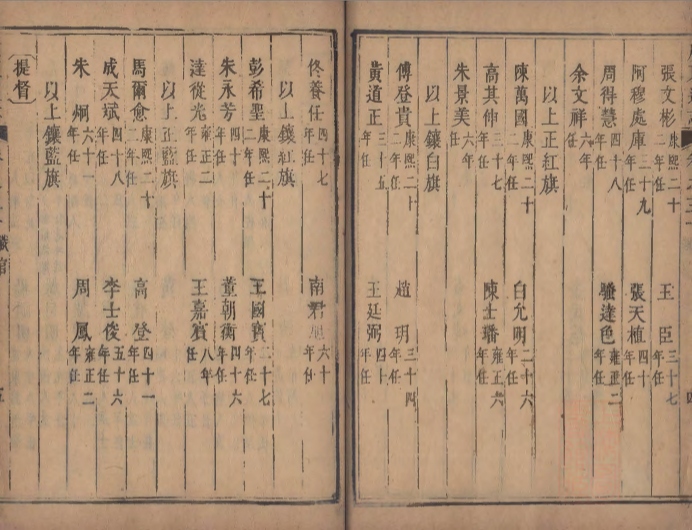 張文彬康熙二十二年任　王臣三十七年任
阿穆處庫三十九年任　張天植四十年任
周得慧四十八年任　騷達色雍正二年任
余文祥六年任
以上正紅旗
陳萬國康熙二十二年任　白允明二十六年任
高其仲年任　陳士璠雍正元年任
朱景美六年任
以上鑲白旗
傅登貴康熙二十二年任　趙玥三十四年任
黄道正三十五年任　王廷弼四十年任
佟養任四十七年任　南君六十年任
以上鑲紅旗
彭希聖康熙二十二年任　王國賓二十七年任
朱永芳四十年任　董朝衡四十六年任
達從光雍正二年任　王嘉賓八年任
以上正藍旗
馬爾愈康熙二十二年任　高登四十一年任
成天斌四十八年任　李士俊五十六年任
朱炯六十一年任　周鳳雍正二年任
以上鑲藍旗
提督
職官
五